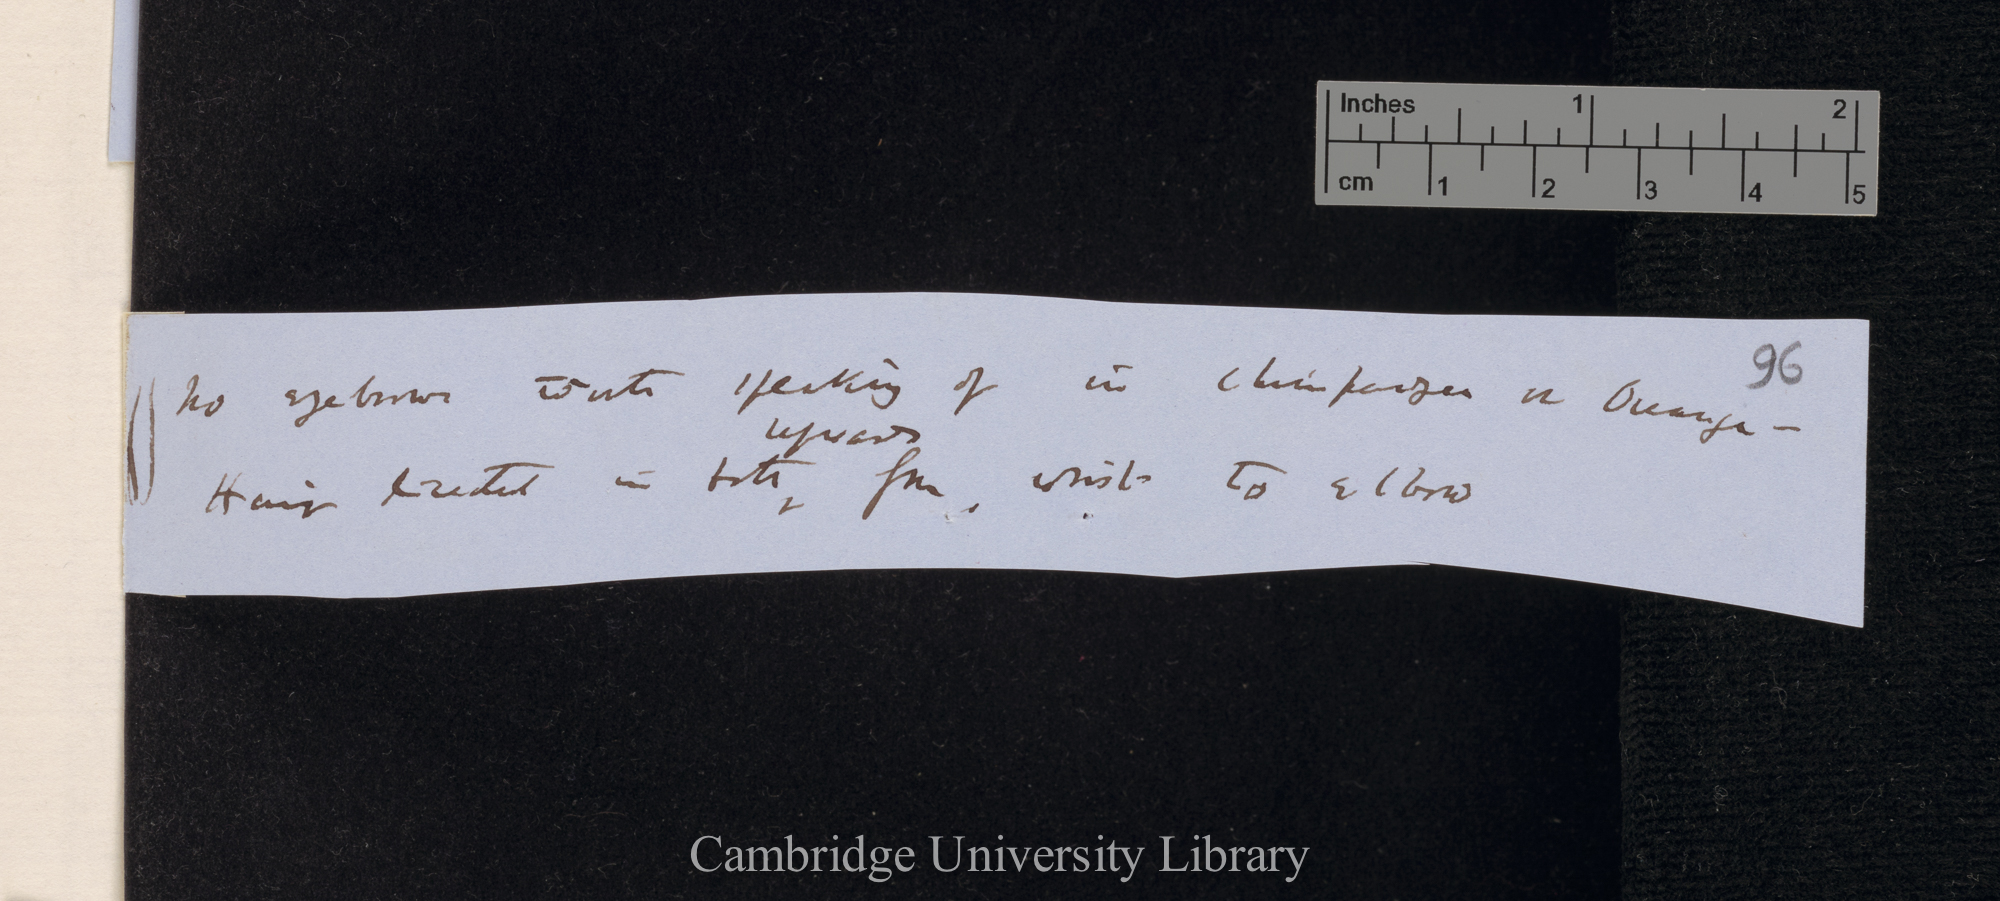 Inches 1 2
cm 1 2 3 4 5
96
No eyebrows worth speaking of in Chimpanzee or Ourang —
upwards
Hair directed in both, from, wrist to elbow
Cambridge University Library